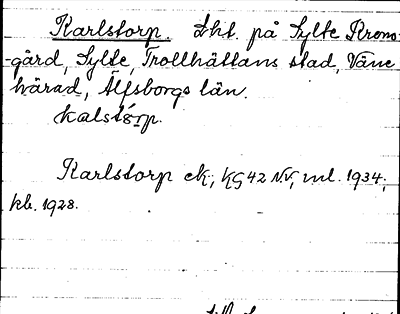 Karlstorp. Lht. på Sylte Krono-
-gård, Sylte, Trollhättans stad, Väne
härad, Älfsborgs län.
kalstórp.
Karlstorp ek, KG 42 NV, ml. 1934;
kb. 1928.